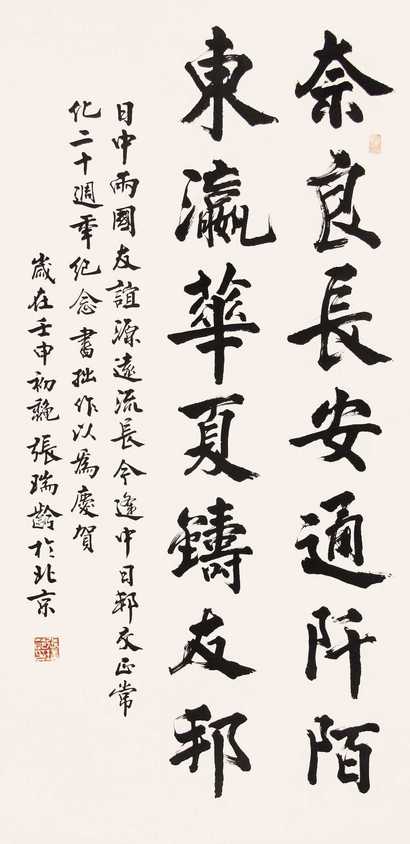 奈良長安通阡陌
東瀛華夏鑄友邦
日中兩國友誼源遠流長今逢中日邦交正常
化二十週年紀念書拙作以為慶賀
歲在壬申初龝張瑞齡於北京